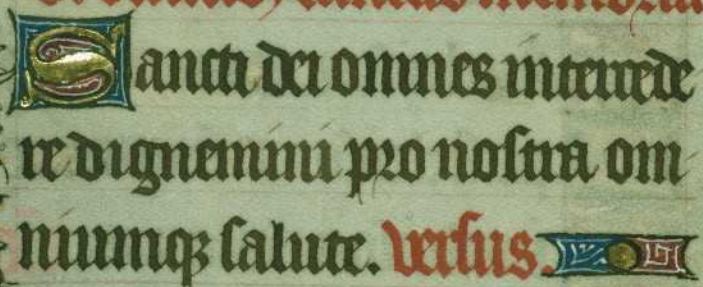 Sancti dei omnes intercede
re dignemini pro nostra om
niumqꝫ salute. versus.